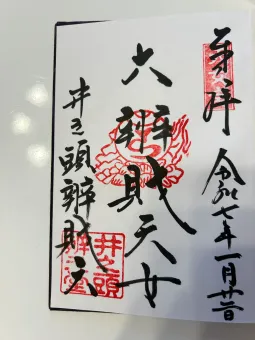 奉拝
令和七年一月廿日
大辨財天女
井之頭辨財天
井之頭